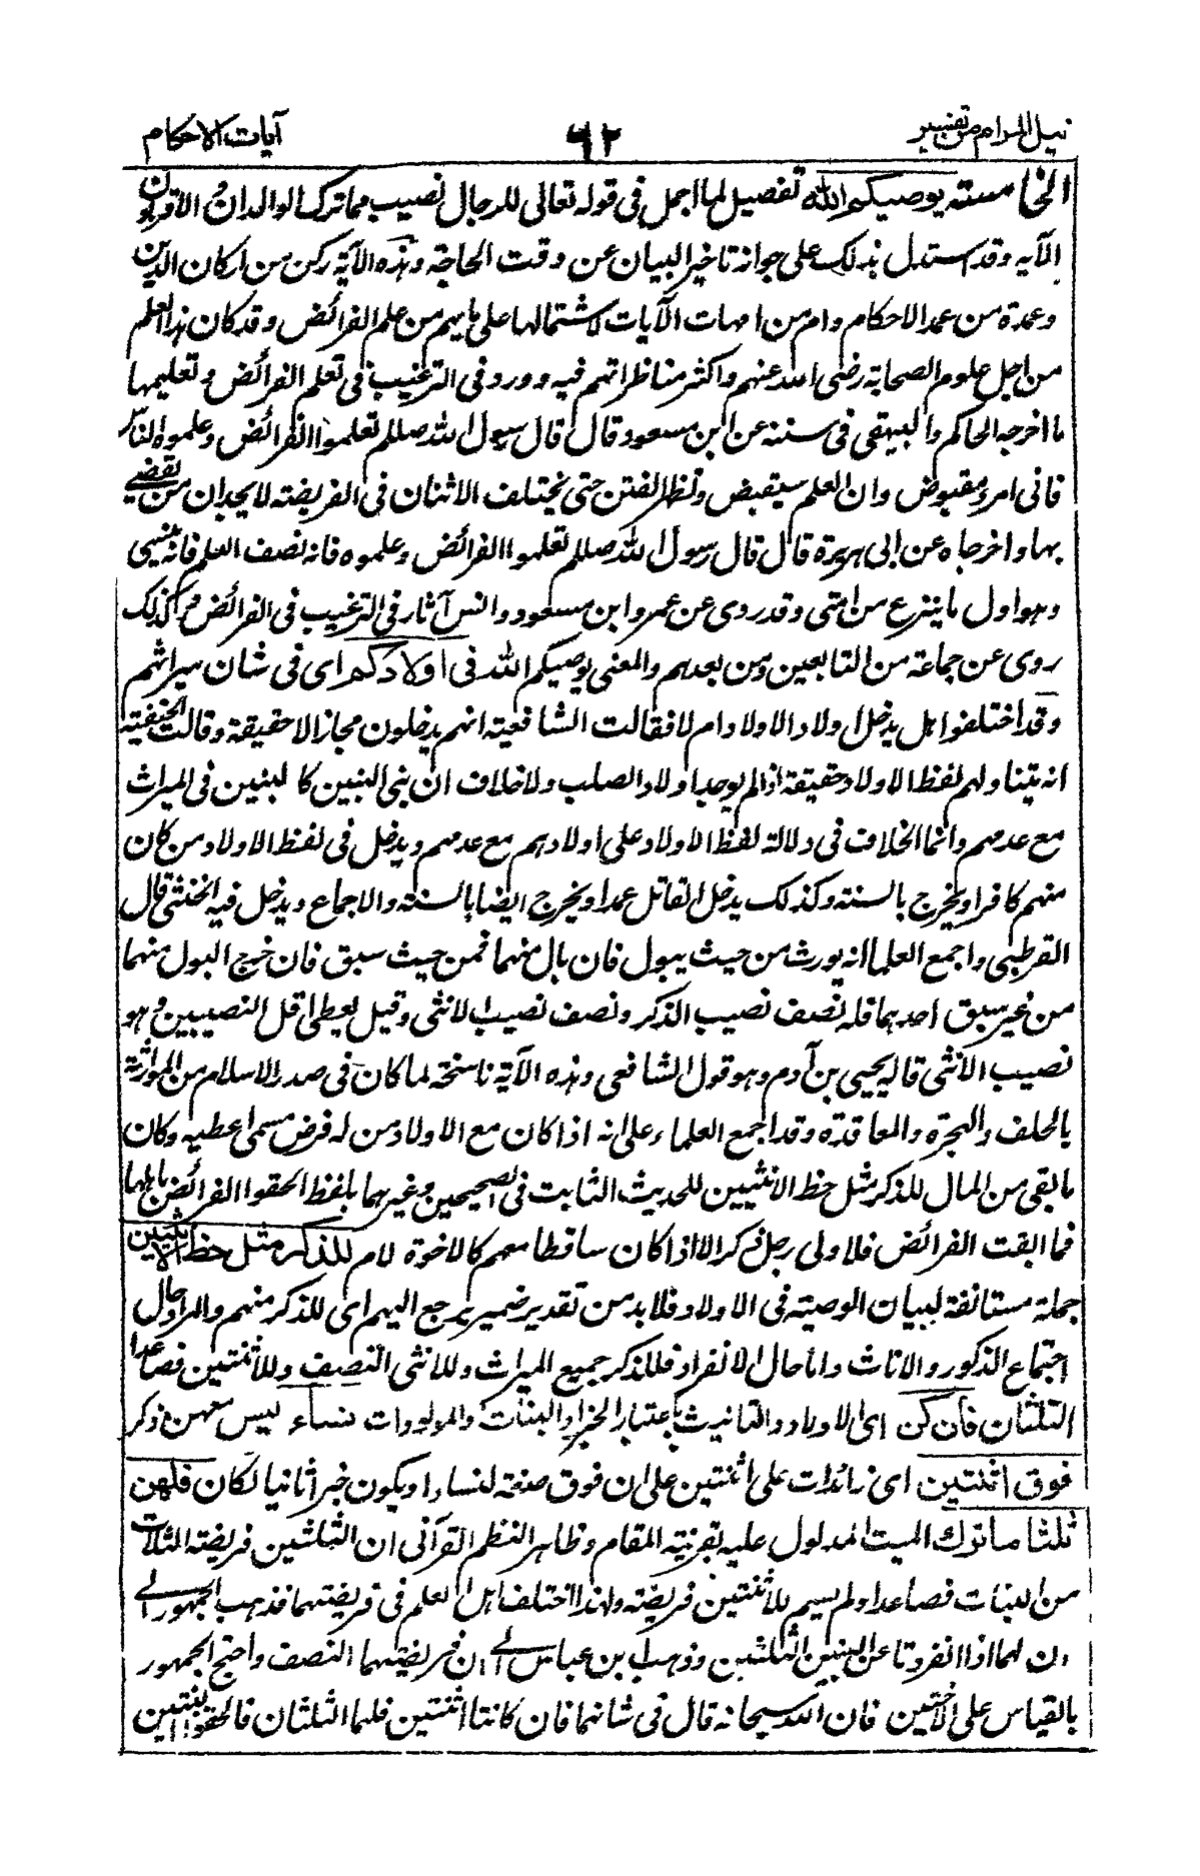 نيل المرام من تفسير ٦٢ آيات الاحكام
الخامسة يوصيكم الله تفصيل لما اجمل فى قوله تعالى للرجال نصيب مما ترك الوالدان والاقربون
الآيه وقد استدل بذلك على جواز تاخير البيان عن وقت الحاجة وهذه الآية ركن من اركان الدين
وعمدة من عمد الاحكام وام من امهات الآيات لاشتمالها على ما يهم من علم الفرائض وقد كان هذا العلم
من اجل علوم الصحابة رضى الله عنهم واكثر مناظراتهم فيه وورد فى الترغيب فى تعلم الفرائض وتعليمها
ما اخرجه الحاكم والبيهقى فى سننه عن ابن مسعود قال قال رسول الله صللم تعلموا الفرائض وعلموه الناس
فانى امرؤ مقبوض وان العلم سيقبض وتظهر الفتن حتى يختلف الاثنان فى الفريضة لا يجدان من يقضى
بها واخرجاه عن ابى هريرة قال قال رسول الله صللم تعلموا الفرائض وعلموه فانه نصف العلم فانه ينسى
وهو اول ما ينزع من امتى وقد روى عن عمر وابن مسعود وانس آثار فى الترغيب فى الفرائض وكذلك
روى عن جماعة من التابعين ومن بعدهم والمعنى يوصيكم الله فى اولادكم اى فى شان ميراثهم
وقد اختلفوا هل يدخل اولاد الاولاد ام لا فقالت الشافعية انهم يدخلون مجازا لا حقيقة وقالت الحنفية
انه يتناولهم لفظ الاولاد حقيقة اذا لم يوجد اولاد الصلب ولا خلاف ان بنى البنين كالبنين فى الميراث
مع عدمهم وانما الخلاف فى دلالة لفظ الاولاد على اولادهم مع عدمهم ويدخل فى لفظ الاولاد من كان
منهم كافرا ويخرج بالسنة وكذلك يدخل القاتل عمدا ويخرج ايضا بالسنة والاجماع ويدخل فيه الخنثى قال
القرطبى واجمع العلما انه يورث من حيث يبول فان بال منهما فمن حيث سبق فان خرج البول منهما
من غير سبق احدهما فله نصف نصيب الذكر ونصف نصيب الانثى وقيل يعطى اقل النصيبين وهو
نصيب الانثى قاله يحيى بن آدم وهو قول الشافعى وهذه الآية ناسخة لما كان فى صدر الاسلام من الموارثة
بالحلف والهجرة والمعاقدة وقد اجمع العلماء على انه اذا كان مع الاولاد من له فرض مسمى اعطيه وكان
ما بقى من المال للذكر مثل حظ الانثيين للحديث الثابت فى الصحيحين وغيرهما بلفظ الحقوا الفرائض باهلها
فما ابقت الفرائض فلاولى رجل ذكر الا اذا كان ساقطا معهم كالاخوة لام للذكر مثل حظ الانثيين
جملة مستانفة لبيان الوصية فى الاولاد فلا بد من تقدير ضمير يرجع اليهم اى للذكر منهم والمراد حال
اجتماع الذكور والاناث واما حال الانفراد فللذكر جميع الميراث وللانثى النصف وللاثنتين فصاعدا
الثلثان فان كن اى الاولاد والتانيث باعتبار الخبر او البنات والمولودات نساء ليس معهن ذكر
فوق اثنتين اى زائدات على اثنتين على ان فوق صفة لنساء او يكون خبرا ثانيا لكان فلهن
ثلثا ما ترك الميت المدلول عليه بقرينة المقام وظاهر النظم القرآنى ان الثلثين فريضة الثلاث
من البنات فصاعدا ولم يسم للاثنتين فريضة ولهذا اختلف اهل العلم فى فريضتهما فذهب الجمهور الى
ان لهما اذا انفردتا عن البنين الثلثين وذهب ابن عباس الى ان فريضتهما النصف واحتج الجمهور
بالقياس على الاختين فان الله سبحانه قال فى شانهما فان كانتا اثنتين فلهما الثلثان فالحقوا البنتين